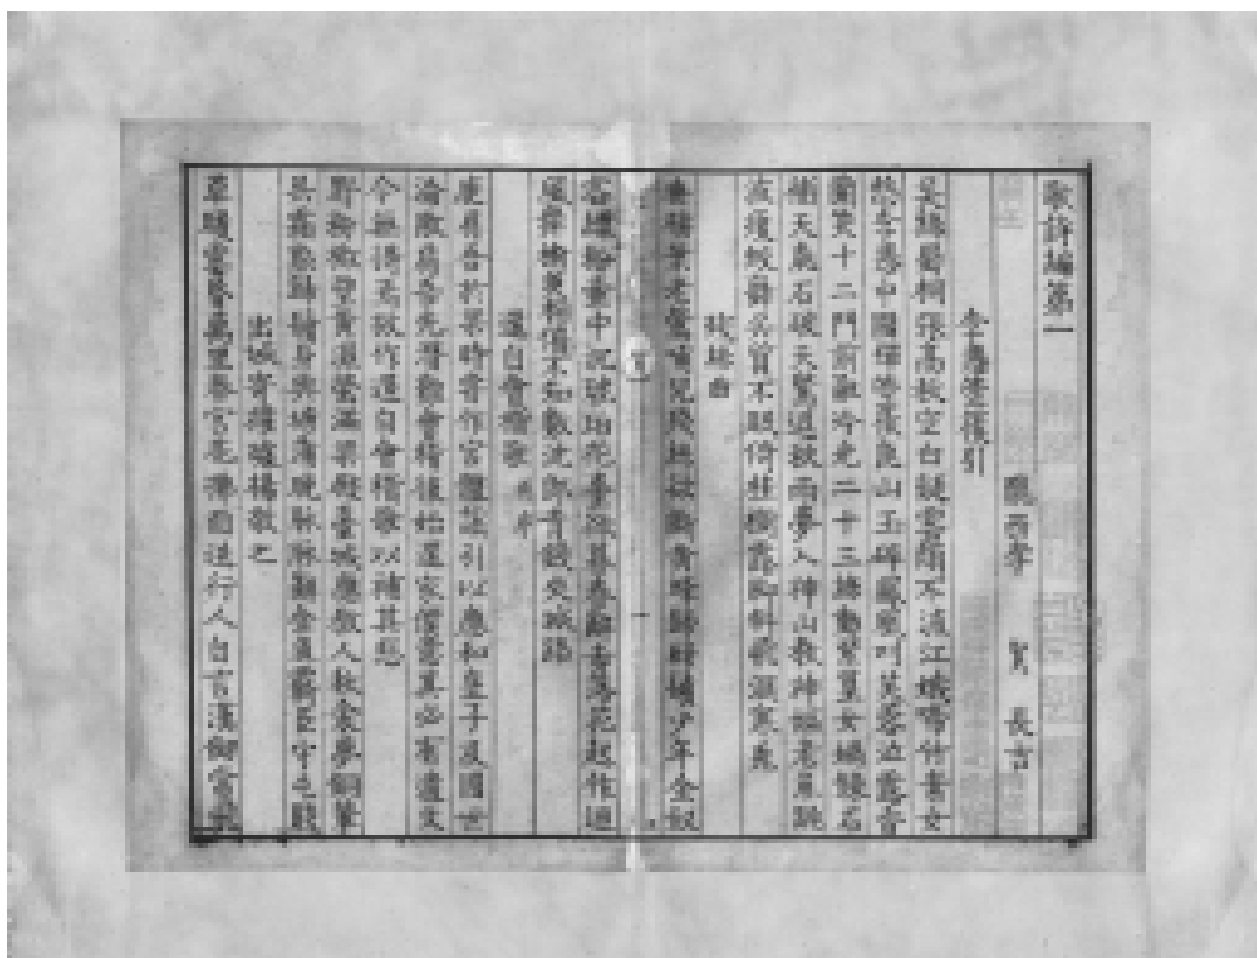 歌詩編第一
隴西李 賀 長吉
李憑箜篌引
吳絲蜀桐張高秋空白凝雲頹不流江娥啼竹素女
愁李憑中國彈箜篌崑山玉碎鳳凰叫芙蓉泣露香
蘭笑十二門前融冷光二十三絲動紫皇女媧鍊石
補天處石破天驚逗秋雨夢入神山教神嫗老魚跳
波瘦蛟舞吳質不眠倚桂樹露脚斜飛濕寒兔
殘絲曲
垂楊葉老鶯哺兒殘絲欲斷黃蜂歸綠鬢少年金釵
客縹粉壺中沉琥珀花臺欲暮春辭去落花起作迴
風舞榆莢相催不知數沈郎青錢夾城路
還自會稽歌 并序
庾肩吾於梁時嘗作宮體謠引以應和皇子及國世
淪敗肩吾先潛難會稽後始還家僕意其必有遺文
今無得焉故作還自會稽歌以補其悲
野粉椒壁黃濕螢滿梁殿臺城應教人秋衾夢銅輦
吳霜點歸鬢身與塘蒲晚脉脉辭金魚羈臣守迍賤
出城寄權璩楊敬之
草暖雲昏萬里春宮花拂面送行人自言漢劍當飛